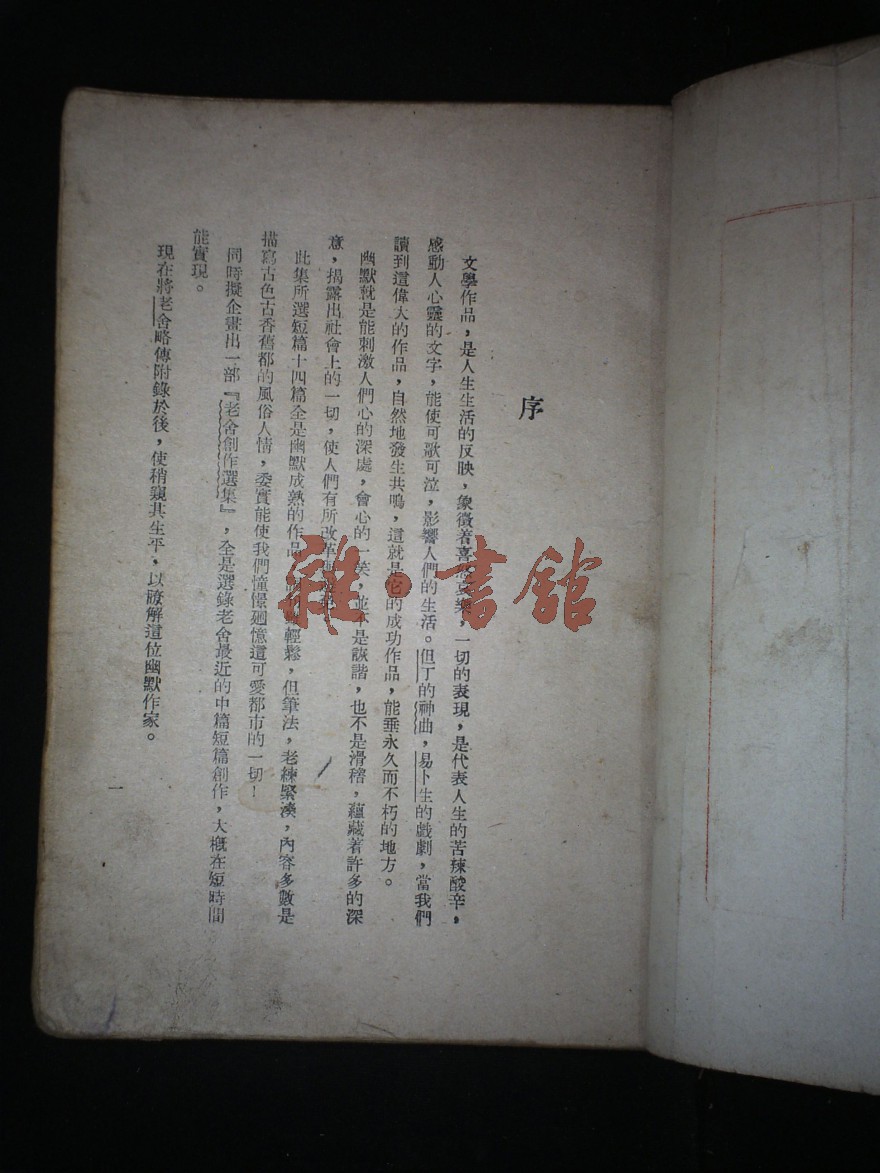 序
文學作品，是人生生活的反映，象徵着喜怒哀樂，一切的表現，是代表人生的苦辣酸辛，
感動人心靈的文字，能使可歌可泣，影響人們的生活。但丁的神曲，易卜生的戲劇，當我們
讀到這偉大的作品，自然地發生共鳴，這就是它的成功作品，能垂永久而不朽的地方。
幽默就是能刺激人們心的深處，會心的一笑，並不是詼諧，也不是滑稽，蘊藏着許多的深
意，揭露出社會上的一切，使人們有所改革
此集所選短篇十四篇全是幽默成熟的作品，輕鬆，但筆法，老練緊湊，內容多數是
描寫古色古香舊都的風俗人情，委實能使我們憧憬廻憶這可愛都市的一切！
同時擬企畫出一部『老舍創作選集』，全是選錄老舍最近的中篇短篇創作，大概在短時間
能實現。
現在將老舍略傳附錄於後，使稍窺其生平，以瞭解這位幽默作家。
一
雜·書館